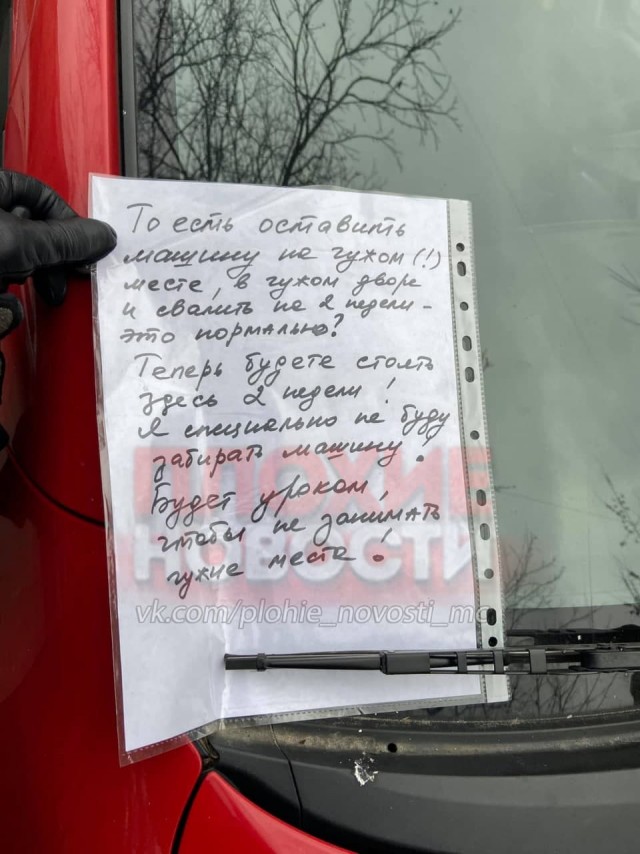 То есть оставить
машину на чужом (!)
месте, в чужом дворе
и свалить на 2 недели -
это нормально?
Теперь будете стоять
здесь 2 недели!
Я специально не буду
забирать машину!
Будет уроком,
чтобы не занимать
чужие места!
ПЛОХИЕ
НОВОСТИ
vk.com/plohie_novosti_mo